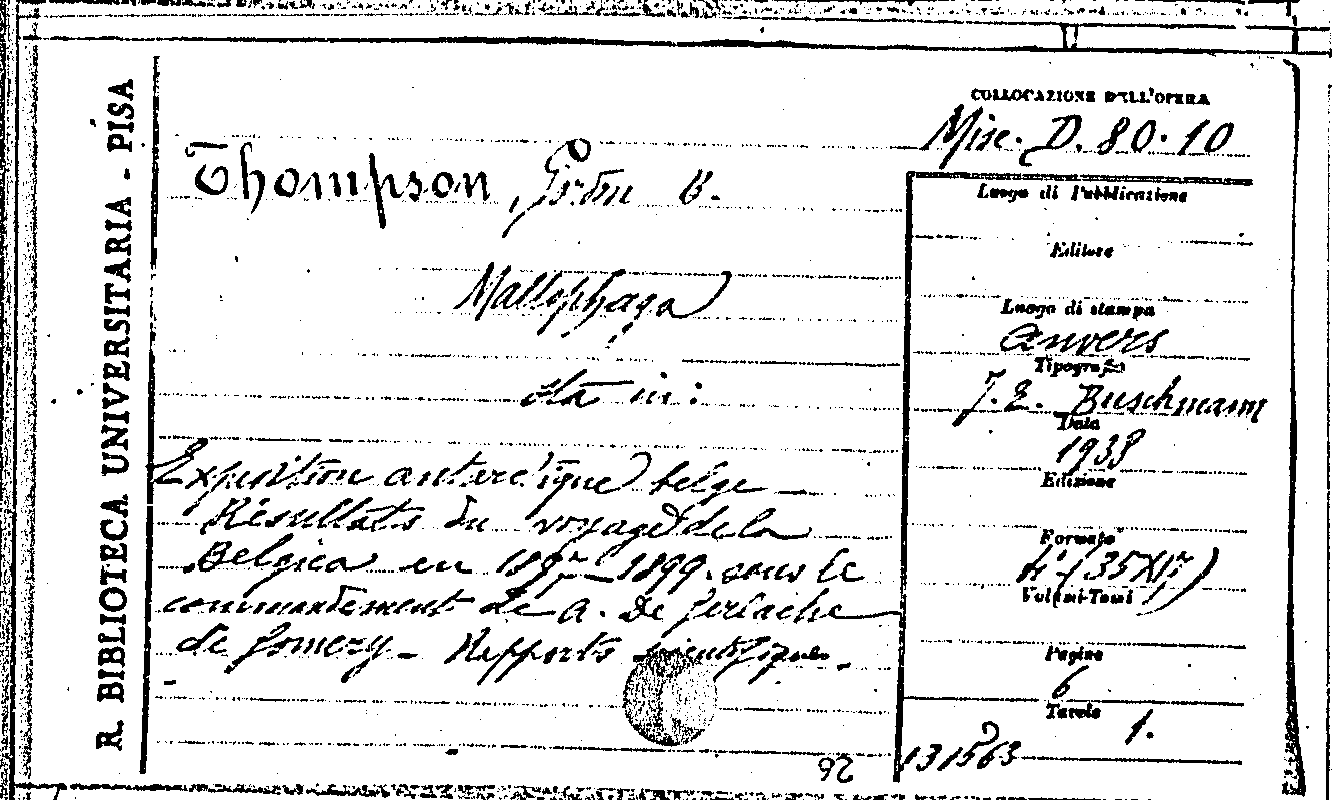 R. BIBLIOTECA UNIVERSITARIA - PISA
COLLOCAZIONE DELL'OPERA
Misc. D. 80. 10
Thompson, B.
Mallophaga
sta in:
Expedition antarctique belge -
Résultats du voyage de la
Belgica en 1897-1899. sous le
commandement de A. De Gerlache
de Gomery - Rapports scientifiques.
Luogo di Pubblicazione
Editore
Luogo di stampa
Anvers
Tipografo
J. E. Buschmann
Data
1938
Edizione
Formato
Volumi-Tomi
Pagine
6
Tavole
1.
131563
26